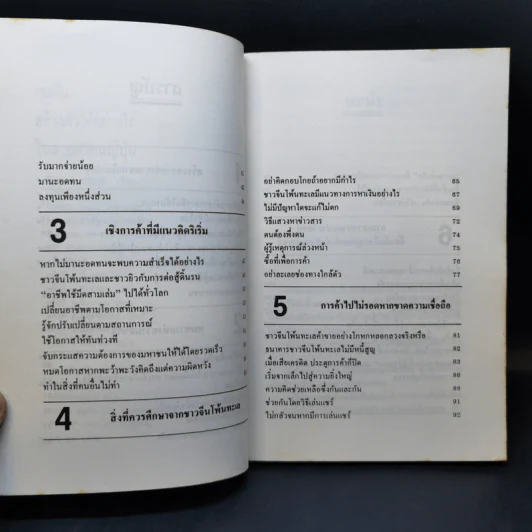 รับมากจ่ายน้อย
มานะอดทน
ลงทุนเพียงหนึ่งส่วน
3 เชิงการค้าที่มีแนวคิดริเริ่ม
หากไม่มานะอดทนจะพบความสำเร็จได้อย่างไร
ชาวจีนโพ้นทะเลและชาวยิวกับการต่อสู้ดิ้นรน
"อาชีพใช้มีดสามเล่ม" ไปได้ทั่วโลก
เปลี่ยนอาชีพตามโอกาสที่เหมาะ
รู้จักปรับเปลี่ยนตามสถานการณ์
ใช้โอกาสให้ทันท่วงที
จับกระแสความต้องการของมหาชนให้ได้โดยรวดเร็ว
หมดโอกาสหากพะว้าพะวังคิดถึงแต่ความผิดหวัง
ทำในสิ่งที่คนอื่นไม่ทำ
4 สิ่งที่ควรศึกษาจากชาวจีนโพ้นทะเล
อย่าคิดกอบโกยถ้าอยากมีกำไร 65
ชาวจีนโพ้นทะเลมีแนวทางการหาเงินอย่างไร 67
ไม่มีปัญหาใดจะแก้ไม่ตก 69
วิธีแสวงหาข่าวสาร 72
ตนต้องพึ่งตน 74
ผู้รู้เหตุการณ์ล่วงหน้า 75
ซื้อที่เพื่อการค้า 76
อย่าละเลยช่องทางใกล้ตัว 77
5 การค้าไปไม่รอดหากขาดความเชื่อถือ
ชาวจีนโพ้นทะเลค้าขายอย่างโกหกหลอกลวงจริงหรือ 81
ธนาคารชาวจีนโพ้นทะเลไม่มีหนี้สูญ 82
เมื่อเสียเครดิต ประตูการค้าก็ปิด 83
เริ่มจากเล็กไปสู่ความยิ่งใหญ่ 88
ความคิดช่วยเหลือซึ่งกันและกัน 90
ช่วยกันโดยวิธีเล่นแชร์ 91
ไม่กลัวจนหากมีการเล่นแชร์ 92